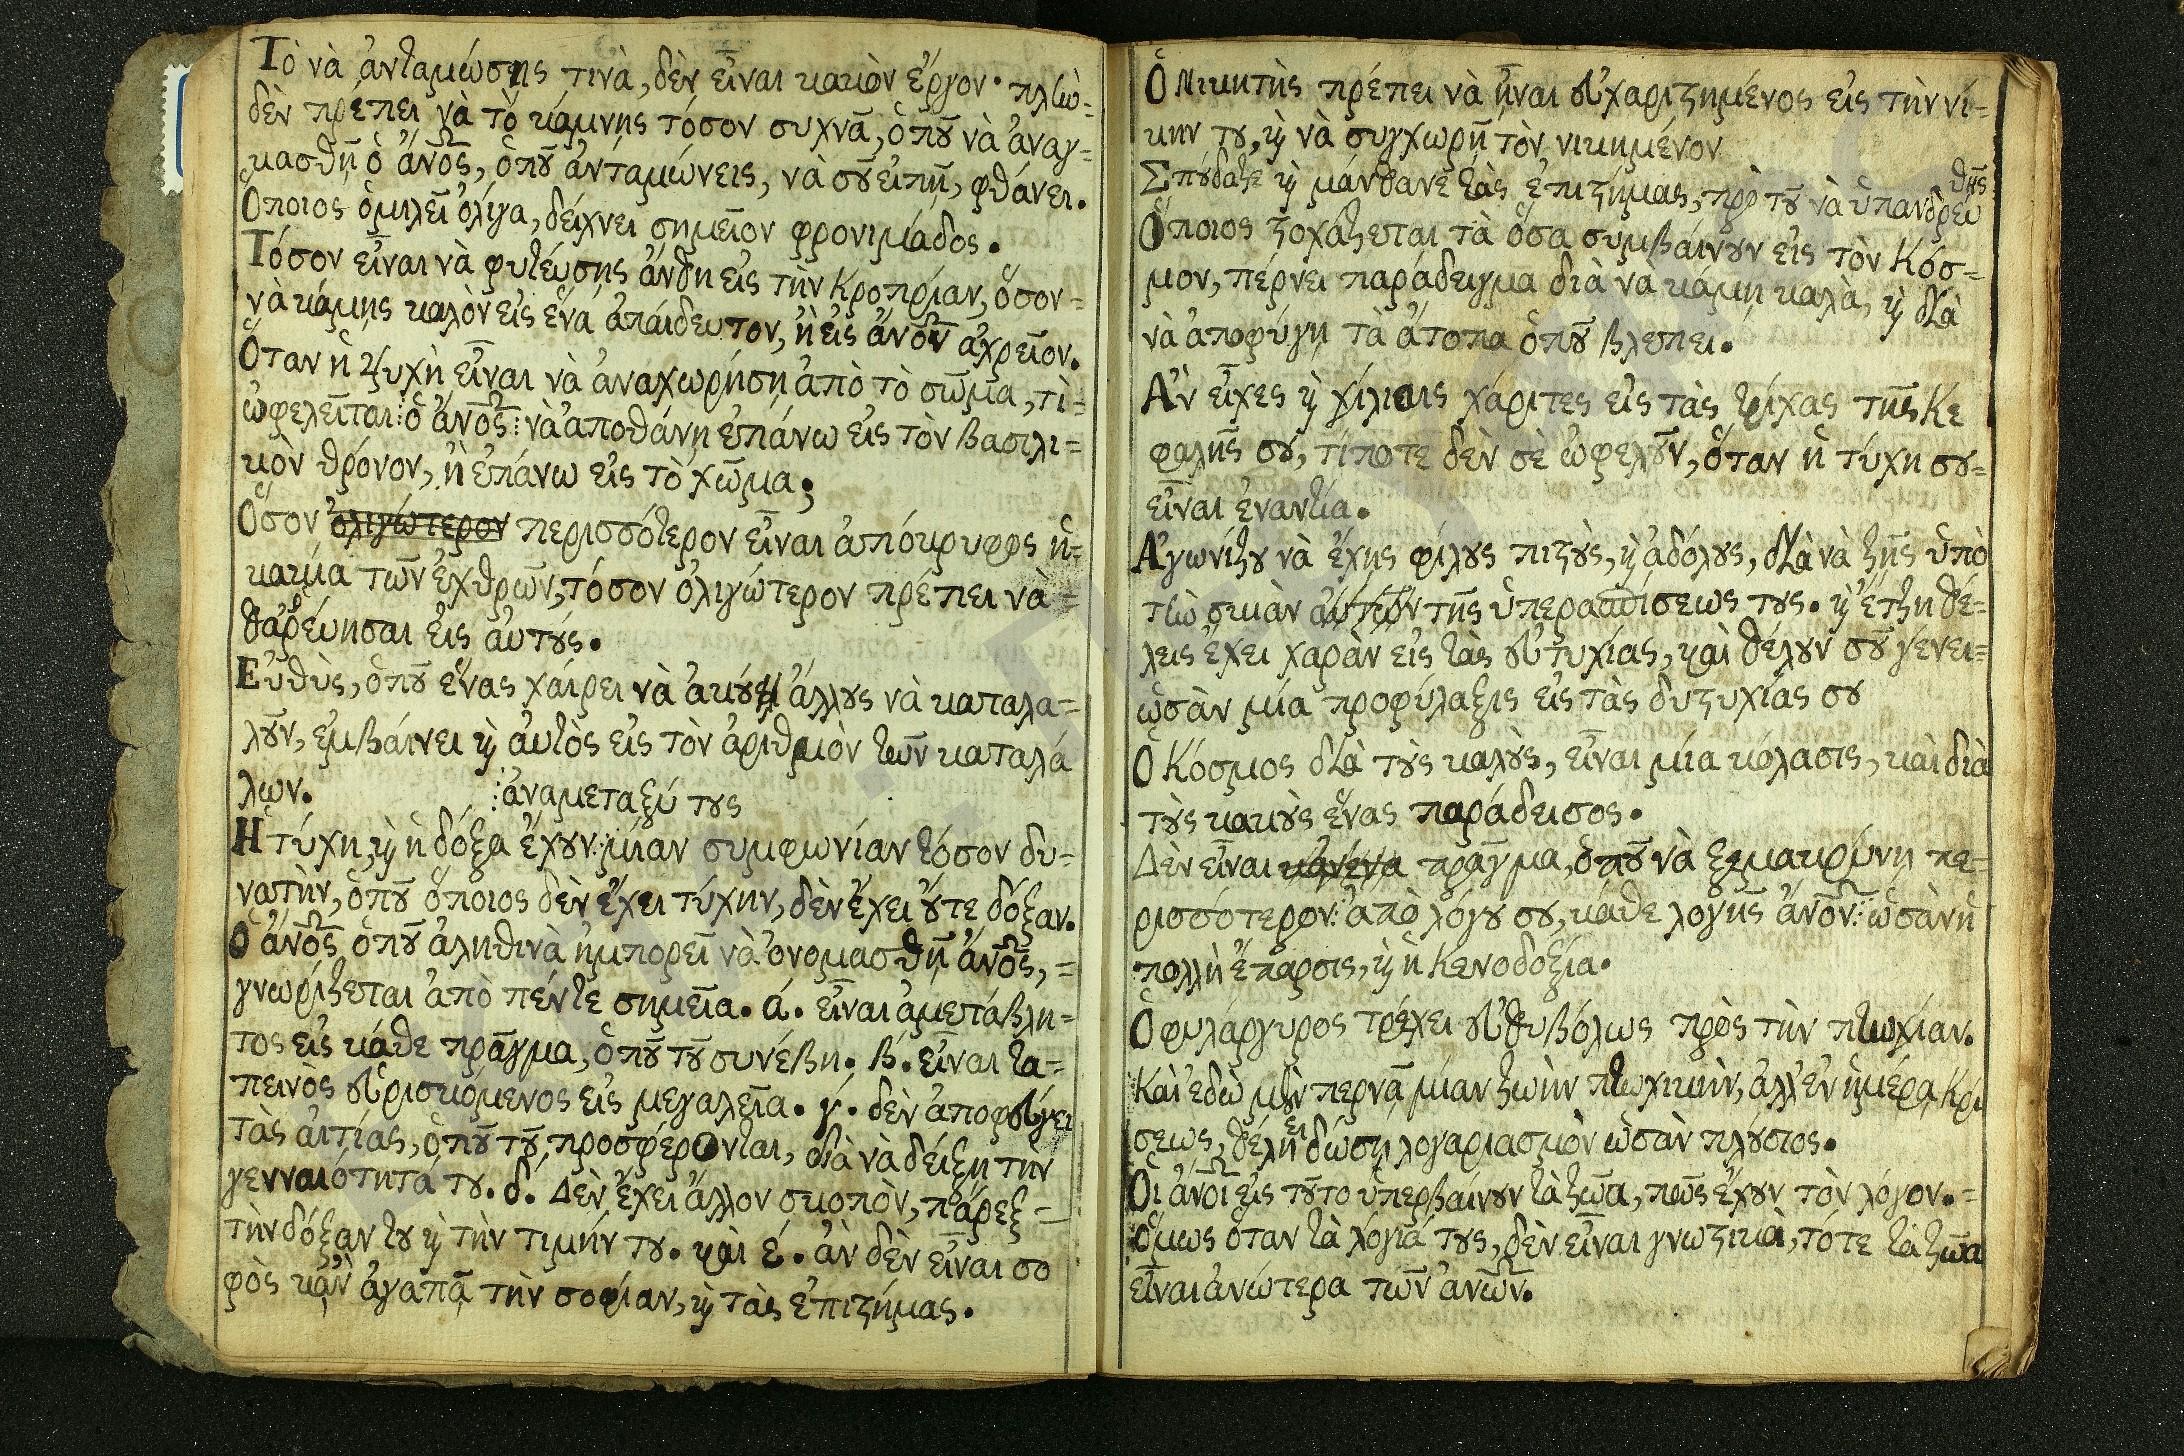 Τὸ νὰ ἀνταμώσῃς τινὰ, δὲν εἶναι κακὸν ἔργον· πλὴν
δὲν πρέπει νὰ τὸ κάμνῃς τόσον συχνὰ, ὁποῦ νὰ ἀναγ=
κασθῇ ὁ ἄνος, ὁποῦ ἀνταμώνεις, νὰ σοῦ εἰπῇ, φθάνει.
Ὅποιος ὁμιλεῖ ὀλίγα, δείχνει σημεῖον φρονιμάδος.
Τόσον εἶναι νὰ φυτεύσῃς ἄνθη εἰς τὴν Κροπρίαν, ὅσον=
νὰ κάμῃς καλὸν εἰς ἕνα ἀπαίδευτον, ἢ εἰς ἄνον ἀχρεῖον.
Ὅταν ἡ ψυχὴ εἶναι νὰ ἀναχωρήσῃ ἀπὸ τὸ σῶμα, τὶ=
ὠφελεῖται ὁ ἄνος νὰ ἀποθάνῃ ἐπάνω εἰς τὸν βασιλι=
κὸν θρόνον, ἢ ἐπάνω εἰς τὸ χῶμα;
Ὅσον ὀλιγώτερον περισσότερον εἶναι ἀπόκρυφος ἡ=
κακία τῶν ἐχθρῶν, τόσον ὀλιγώτερον πρέπει νὰ=
θαῤῥεύησαι εἰς αὐτούς.
Εὐθὺς, ὁποῦ ἕνας χαίρει νὰ ἀκούει ἄλλους νὰ καταλα=
λοῦν, ἐμβαίνει καὶ αὐτὸς εἰς τὸν ἀριθμὸν τῶν καταλά
λων.
ἀναμεταξύ τους
Ἡ τύχη, καὶ ἡ δόξα ἔχουν μίαν συμφωνίαν τόσον δυ=
νατὴν, ὁποῦ ὅποιος δὲν ἔχει τύχην, δὲν ἔχει οὔτε δόξαν.
Ὁ ἄνος ὁποῦ ἀληθινὰ ἠμπορεῖ νὰ ὀνομασθῇ ἄνος,=
γνωρίζεται ἀπὸ πέντε σημεῖα. ά. εἶναι ἀμετάβλη=
τος εἰς κάθε πρᾶγμα, ὁποῦ τοῦ συνέβη. β. εἶναι τα=
πεινὸς εὑρισκόμενος εἰς μεγαλεῖα. γ. δὲν ἀποφεύγει
τὰς αἰτίας, ὁποῦ τοῦ προσφέρονται, διὰ νὰ δείξῃ τὴν
γενναιότητά του. δ. Δὲν ἔχει ἄλλον σκοπὸν, πάρεξ=
τὴν δόξαν του καὶ τὴν τιμήν του. καὶ έ. ἀν δὲν εἶναι σο
φὸς κᾂν ἀγαπᾷ τὴν σοφίαν, καὶ τὰς ἐπιστήμας.
Ὁ Νικητὴς πρέπει νὰ ᾖναι εὐχαριστημένος εἰς τὴν νί=
κην του, καὶ νὰ συγχωρῇ τὸν νικημένον
Σπούδαζε καὶ μάνθανε τὰς ἐπιστήμας, πρὸ τοῦ νὰ ὑπανδρευ
θῇς
Ὅποιος στοχάζεται τὰ ὅσα συμβαίνουν εἰς τὸν Κόσ=
μον, πέρνει παράδειγμα διὰ νὰ κάμῃ καλὰ, καὶ διὰ
νὰ ἀποφύγῃ τὰ ἄτοπα ὁποῦ βλέπει.
Ἀν εἶχες καὶ χίλιαις χάριτες εἰς τὰς τρίχας τῆς Κε
φαλῆς σου, τίποτε δὲν σὲ ὠφελοῦν, ὅταν ἡ τύχη σου=
εἶναι ἐναντία.
Ἀγωνίζου νὰ ἔχῃς φίλους πιστοὺς, καὶ ἀδόλους, διὰ νὰ ζῇς ὑπὸ
τὴν σκιὰν αὐτῶν τῆς ὑπερασπίσεως τους. καὶ ἔτζη θέ=
λεις ἔχει χαρὰν εἰς τὰς εὐτυχίας, καὶ θέλουν σοῦ γένει=
ὡσὰν μία προφύλαξις εἰς τὰς δυστυχίας σου
Ὁ Κόσμος διὰ τοὺς καλοὺς, εἶναι μία κόλασις, καὶ διὰ
τοὺς κακοὺς ἕνας παράδεισος.
Δὲν εἶναι κᾀνένα πρᾶγμα, ὁποῦ νὰ ξεμακρύνῃ πε=
ρισσότερον ἀπὸ λόγου σου, κάθε λογῆς ἄνον ὡσὰν ἡ
πολλὴ ἔπαρσις, καὶ ἡ Κενοδοξία.
Ὁ φυλάργυρος τρέχει εὐθυβόλως πρὸς τὴν πτωχίαν.
Καὶ ἐδὼ μὲν περνᾷ μίαν ζωὴν πτωχικὴν, ἀλλ' ἐν ἡμέρᾳ Κρι
σεως, θέλει δώσῃ λογαριασμὸν ὡσὰν πλούσιος.
Οἱ ἄνοι εἰς τοῦτο ὑπερβαίνουν τὰ ζῶα, πῶς ἔχουν τὸν λόγον.=
Ὅμως ὅταν τὰ λόγιά τους, δὲν εἶναι γνωστικὰ, τότε τὰ ζῶα
εἶναι ἀνώτερα τῶν ἄνων.